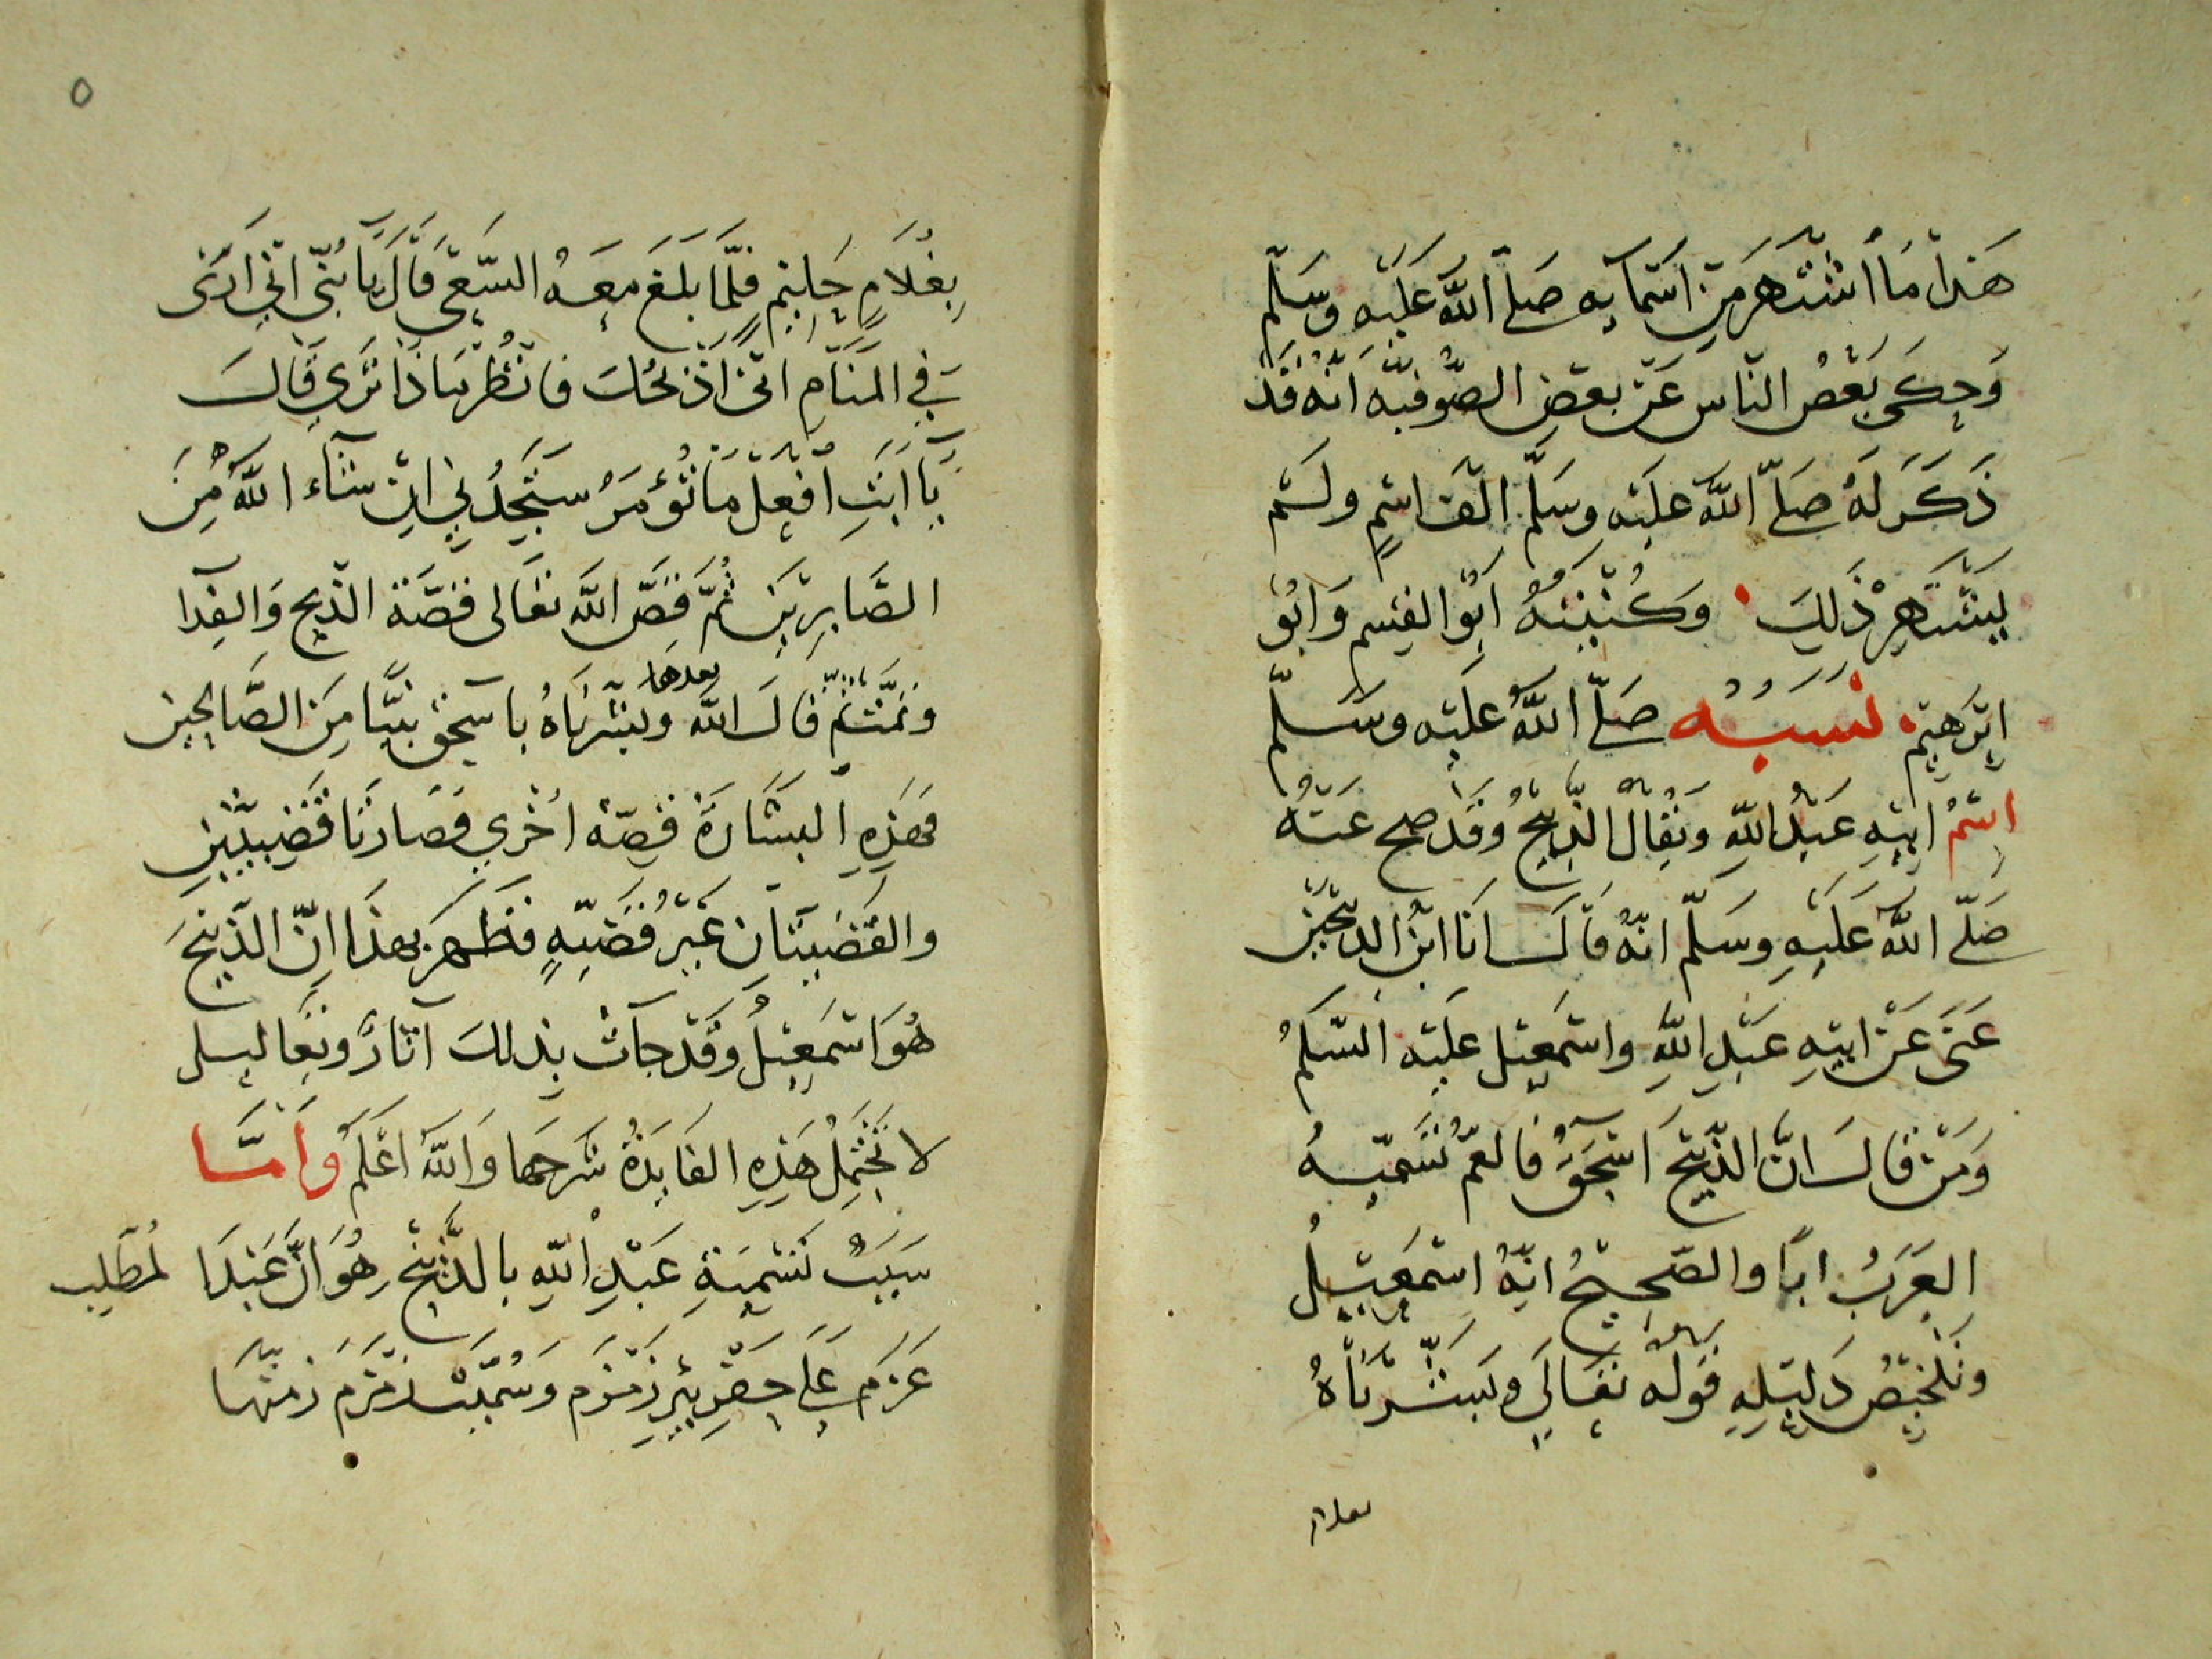 هَذا مَا اشْتَهَرَ مِنْ اسْمَآيِه صَلّى اللَّه عَلَيْه وَسَلّم
وَحكَى بَعْضُ النّاسِ عَنْ بعضِ الصُّوفيّه اَنّه قَدْ
ذَكَرَ لَهُ صَلّى اللَّه عليْه وسَلَّم الْفَ اسْمٍ ولَمْ
يَشْتَهِرْ ذَلِكَ وَكُنْيَتُهُ اَبُو القسِم وَابُو
ابْرَهِيْم نَسَبُه صَلّى اللَّهُ عَلَيْه وسَلّم
اِسْمُ ابِيْهِ عَبدُ اللَّهِ وَيُقالُ الذَّبِيْحُ وَقَدْ صح عَنْهُ
صَلّى اللَّه عَلَيْهِ وسَلّم انّهُ قَالَ انَا ابنُ الذبيْحَيْن
عَنَى عَنْ ابِيْهِ عَبْدِ اللَّهِ واسْمَعِيْل عَلَيْه السّلَمُ
وَمَنْ قَالَ انَّ الذّبيْحَ اسْحَقُ فالعَمُّ تُسَمّيْهُ
العَرَبُ ابًا والصّحِيْحُ انّهُ اسْمَعِيْلُ
وتَلْخِيْصُ دَلِيْلِهِ قَوْلُه تَعَالَى وبَشَّرْنَاهُ
بغلام
٥
بِغُلَامٍ حَلِيْمٍ فَلَمَّا بَلَغَ مَعَهُ السَّعْيَ قَالَ يَا بُنَيّ انّي اَرَى
فِي المَنَامِ انّى اَذْبَحُكَ فانْظُرْ مَاذَا تَرَى قَالَ
يَآ اَبَتِ افْعَلْ مَا تُؤْمَرُ سَتَجِدُنِي اِنْ شَآءَ اللَّهُ مِنَ
الصَّابِرِيْنَ ثُمَّ قَصَّ اللَّه تعَالى قصَّةَ الذّبح وَالفِدَا
وتمّتْ ثُمّ قَالَ اللَّه بعدها وبَشّرنَاهُ باسحَقَ نبيًّا مِنَ الصَّالِحِين
فهَذِهِ البِشَارَةُ قصّة اُخْرى فصَارتَا قَضِيّتَيْنِ
والقَضيّتَان غَيْرُ قَضِيّةٍ فظهرَ بهذَا اِنّ الذّبِيْحَ
هُوَ اسْمَعِيْلُ وَقَدْ جآتْ بِذلكَ آثارٌ وتعاليل
لا تَحْتَمِلُ هَذِهِ الفَايِدَةُ شَرحَهَا وَاللَّهُ اعْلَمُ وَأَمَّا
سَبَبُ تَسْمِيَةِ عَبْدِ اللَّهِ بِالذَّبِيْحِ هُوَ اَنَّ عَبْدَ ا لمُطّلِب
عَزَمَ عَلَى حَفْرِ بِيْرِ زَمْزَم وَسُمّيَتْ زَمْزَم زمّتهَا